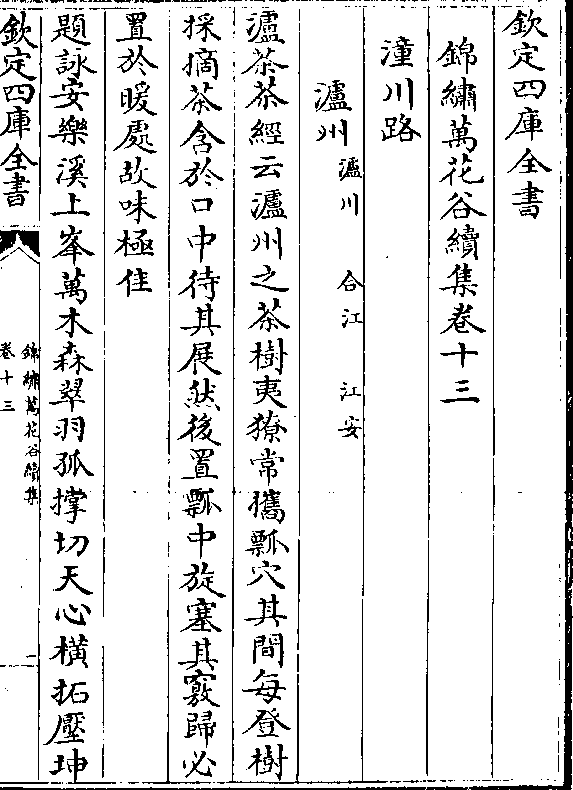 欽定四庫全書
錦繡萬花谷續集卷十三
潼川路
瀘州瀘川 合江 江安
瀘茶茶經云瀘州之茶樹夷獠常攜瓢穴其間每登樹
採摘茶含於口中待其展然後置瓢中旋塞其竅歸必
置於暖處故味極佳
題詠安樂溪上峯萬木森翠羽孤撑切天心橫拓壓坤
欽定四庫全書
錦繡萬花谷續集
卷十三
一